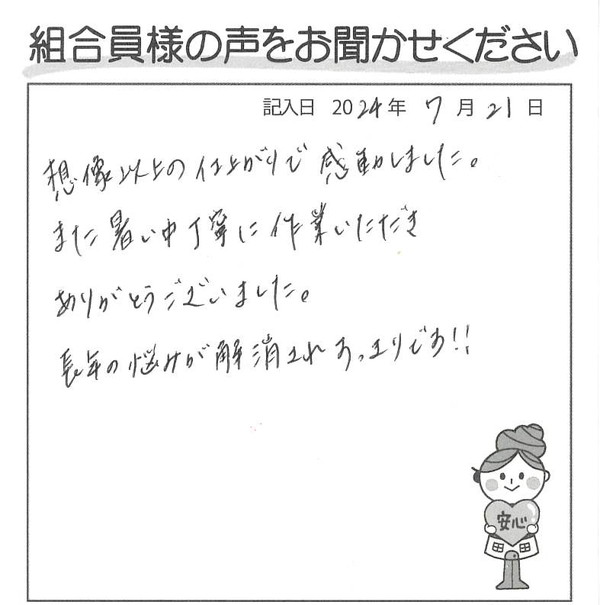 組合員様の声をお聞かせください
記入日 2024年 7月21日
想像以上の仕上がりで感動しました。
また暑い中丁寧に作業いただき
ありがとうございました。
長年の悩みが解消されすっきりです!!
安心